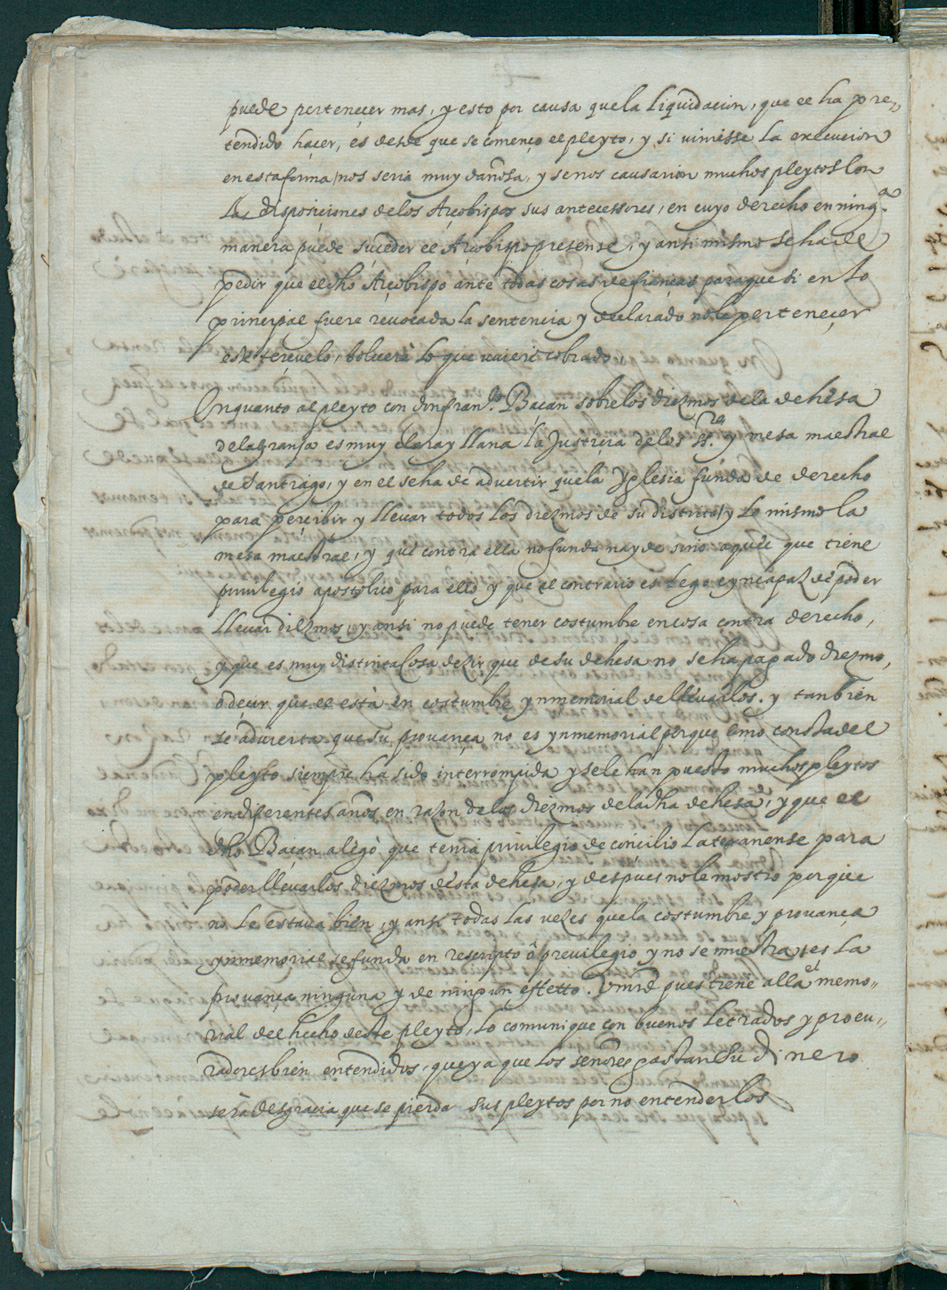 puede pertenecer mas, y esto por causa que la liquidacion, que se ha pre-
tendido hacer, es desde que se començo el pleyto, y si viniesse la execucion
en esta forma nos seria muy dañosa, y se nos causarian muchos pleytos con
las disposiciones de los Arçobispos sus antecessores, en cuyo derecho en ning.ª
manera puede suceder el Arçobispo presente, y ansi mismo se ha de
pedir que el dho Arçobispo ante todas cosas de fianças para que si en lo
principal fuere revocada la sentencia y declarado no le pertenecer
bolvera lo que uviere cobrado.
En quanto al pleyto con don fran.co Baçan sobre los diezmos de la dehesa
de la granja es muy clara y llana la Justicia de los s.res y mesa maestral
de Santiago, y en el se ha de advertir que la Yglesia funda de derecho
para percibir y llevar todos los diezmos de su distrito, y lo mismo la
mesa maestral, y que contra ella no funda nayde sino aquel que tiene
privilegio apostolico para ello y que el contrario es lego e yncapaz de poder
llevar diezmos, y ansi no puede tener costumbre en cosa contra derecho,
y que es muy distinta cosa dezir que de su dehesa no se ha pagado diezmo,
o decir que el está en costumbre ynmemorial de llevarlos. y tanbien
se advierta que su provança no es ynmemorial porque como consta del
pleyto siempre ha sido interrompida y se le han puesto muchos pleytos
en diferentes años en razon de los diezmos de la dha dehesa, y que el
dho Baçan alegó que tenia privilegio de concilio Lateranense para
poder llevar los diezmos desta dehesa, y despues no le mostro porque
no le estava bien, y ansi todas las vezes que la costumbre y provança
ynmemorial se funda en rescripto ô previlegio y no se muestra, es la
provança ninguna y de ningun effetto. Vmrd pues tiene alla el memo-
rial del hecho deste pleyto, lo comunique con buenos letrados y procu-
radores bien entendidos, que ya que los señores gastan su dinero
será desgracia que se pierda sus pleytos por no entenderlos